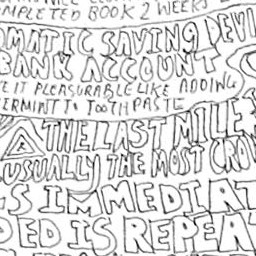 MPLETED BOOK 2 WEEKS
OMATIC SAVING DEVI
BANK ACCOUNT
E IT PLEASURABLE LIKE ADDING
ERMINT TO TOOTHPASTE
THE LAST MILE
USUALLY THE MOST CROW
S IMMEDIAT
DED IS REPEAT